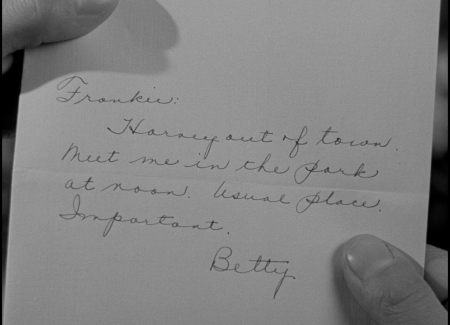 Frankie:
Harvey out of town.
Meet me in the park
at noon. Usual place.
Important.
Betty